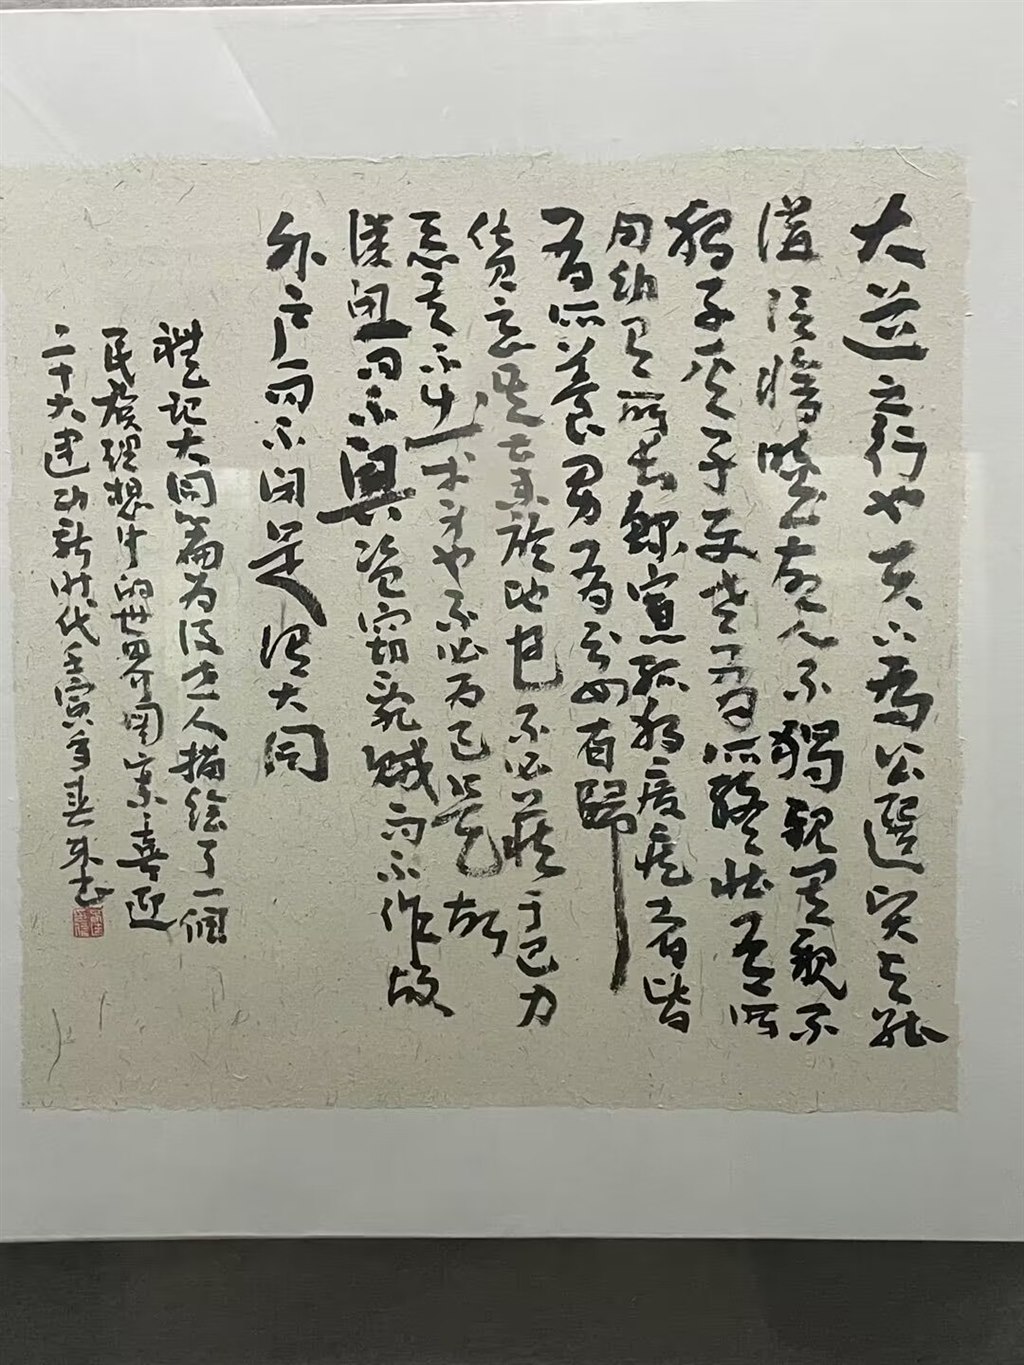 大道之行也天下為公選贤与能
講信修睦故人不獨親其親不
獨子其子使老有所終壯有所
用幼有所長鰥寡孤獨廢疾者皆
有所養男有分女有歸
貨惡其棄於地也不必藏于己力
惡其不出於身也不必為己是故
謀閉而不興盜竊亂賊而不作故
外户而不闭是谓大同
禮记大同篇为後世人描绘了一個
民族理想中的世界图景喜迎
二十大建功新时代壬寅年 书